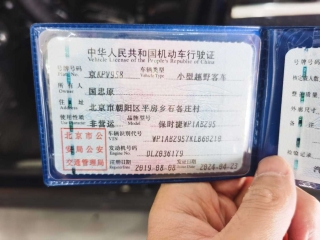 中华人民共和国机动车行驶证
Vehicle License of the People's Republic of China
号牌号码 京APV958 车辆类型 小型越野客车
Plate No. Vehicle Type
所有人 国忠原
Owner
住址 北京市朝阳区平房乡石各庄村
Address
使用性质 非营运 品牌型号 保时捷WP1AB295
Use Character Model
北京市公 车辆识别代号
VIN
安局公安 发动机号码 DLZ036179
Engine No.
交通管理局 注册日期 2019-08-08 发证日期 2024-04-23
Register Date Issue Date